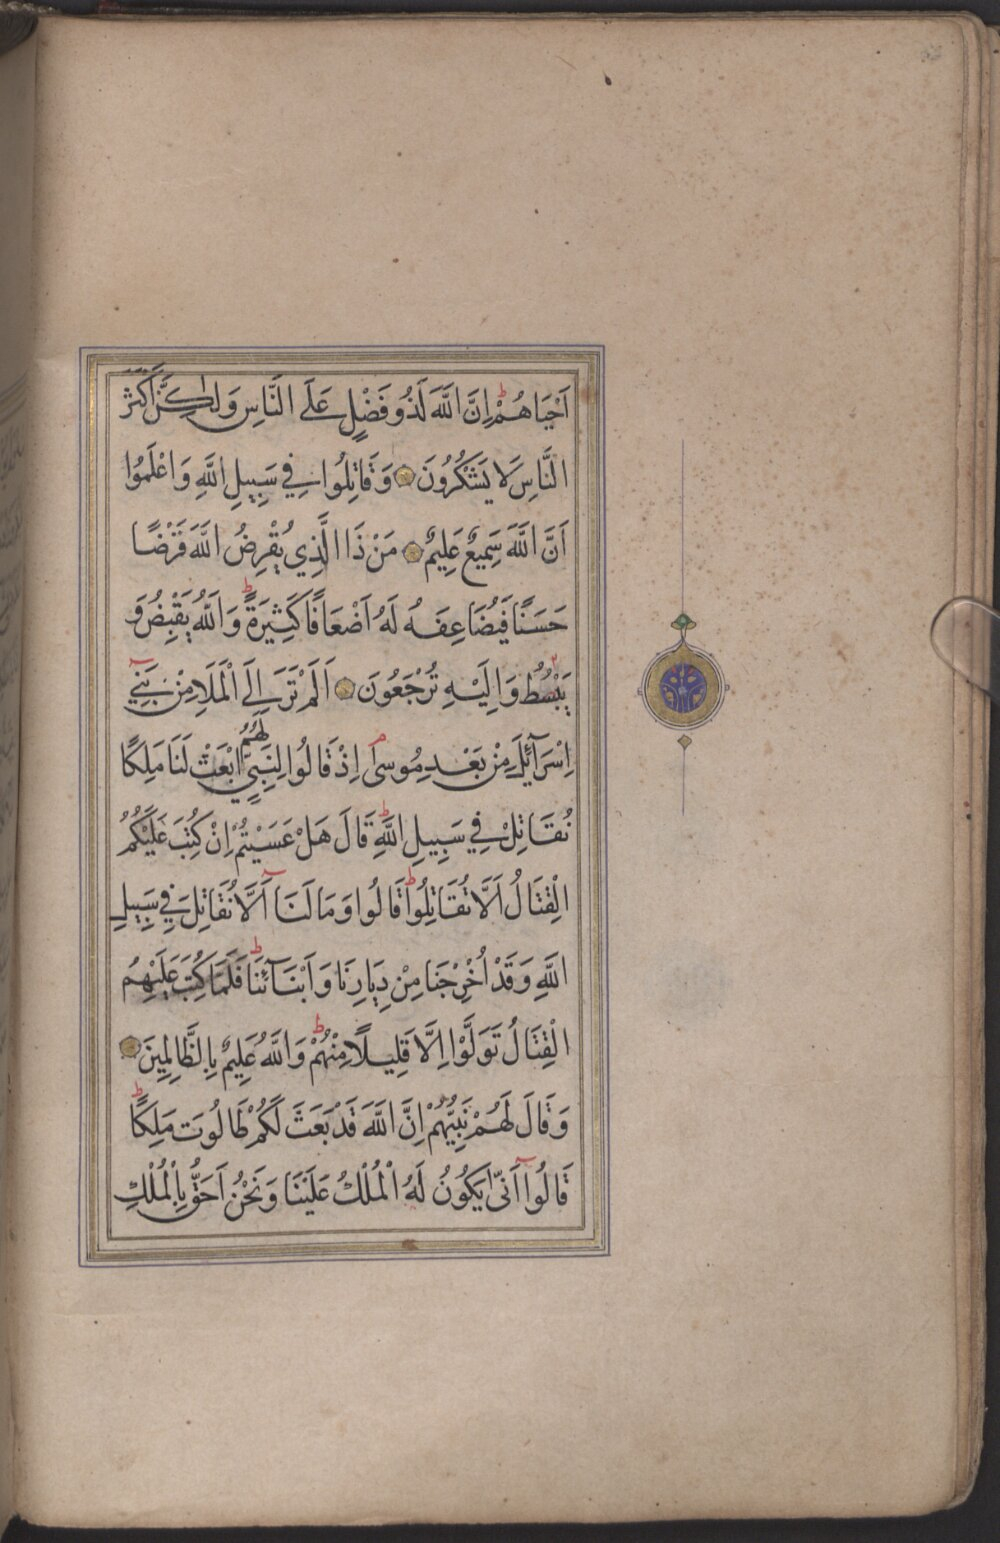 اَحْيَاهُمْ ط اِنَّ اللَّهَ لَذُو فَضْلٍ عَلَى النَّاسِ وَلٰكِنَّ اَكْثَرَ
النَّاسِ لَا يَشْكُرُونَ وَقَاتِلُوا فِي سَبِيلِ اللَّهِ وَاعْلَمُوا
اَنَّ اللَّهَ سَمِيعٌ عَلِيمٌ مَنْ ذَا الَّذِي يُقْرِضُ اللَّهَ قَرْضًا
حَسَنًا فَيُضَاعِفَهُ لَهُ اَضْعَافًا كَثِيرَةً ط وَاللَّهُ يَقْبِضُ وَ
يَبْسُطُ وَاِلَيْهِ تُرْجَعُونَ اَلَمْ تَرَ اِلَى الْمَلَاِ مِنْ بَنِي
اِسْرَآئِلَ مِنْ بَعْدِ مُوسٰى م اِذْ قَالُوا لِنَبِيٍّ لَهُمُ ابْعَثْ لَنَا مَلِكًا
نُقَاتِلْ فِي سَبِيلِ اللَّهِ ط قَالَ هَلْ عَسَيْتُمْ اِنْ كُتِبَ عَلَيْكُمُ
الْقِتَالُ اَلَّا تُقَاتِلُوا ط قَالُوا وَمَا لَنَا اَلَّا نُقَاتِلَ فِي سَبِيلِ
اللَّهِ وَقَدْ اُخْرِجْنَا مِنْ دِيَارِنَا وَاَبْنَآئِنَا ط فَلَمَّا كُتِبَ عَلَيْهِمُ
الْقِتَالُ تَوَلَّوْا اِلَّا قَلِيلًا مِنْهُمْ ط وَاللَّهُ عَلِيمٌ بِالظَّالِمِينَ
وَقَالَ لَهُمْ نَبِيُّهُمْ اِنَّ اللَّهَ قَدْ بَعَثَ لَكُمْ طَالُوتَ مَلِكًا ط
قَالُوا اَنّٰى يَكُونُ لَهُ الْمُلْكُ عَلَيْنَا وَنَحْنُ اَحَقُّ بِالْمُلْكِ